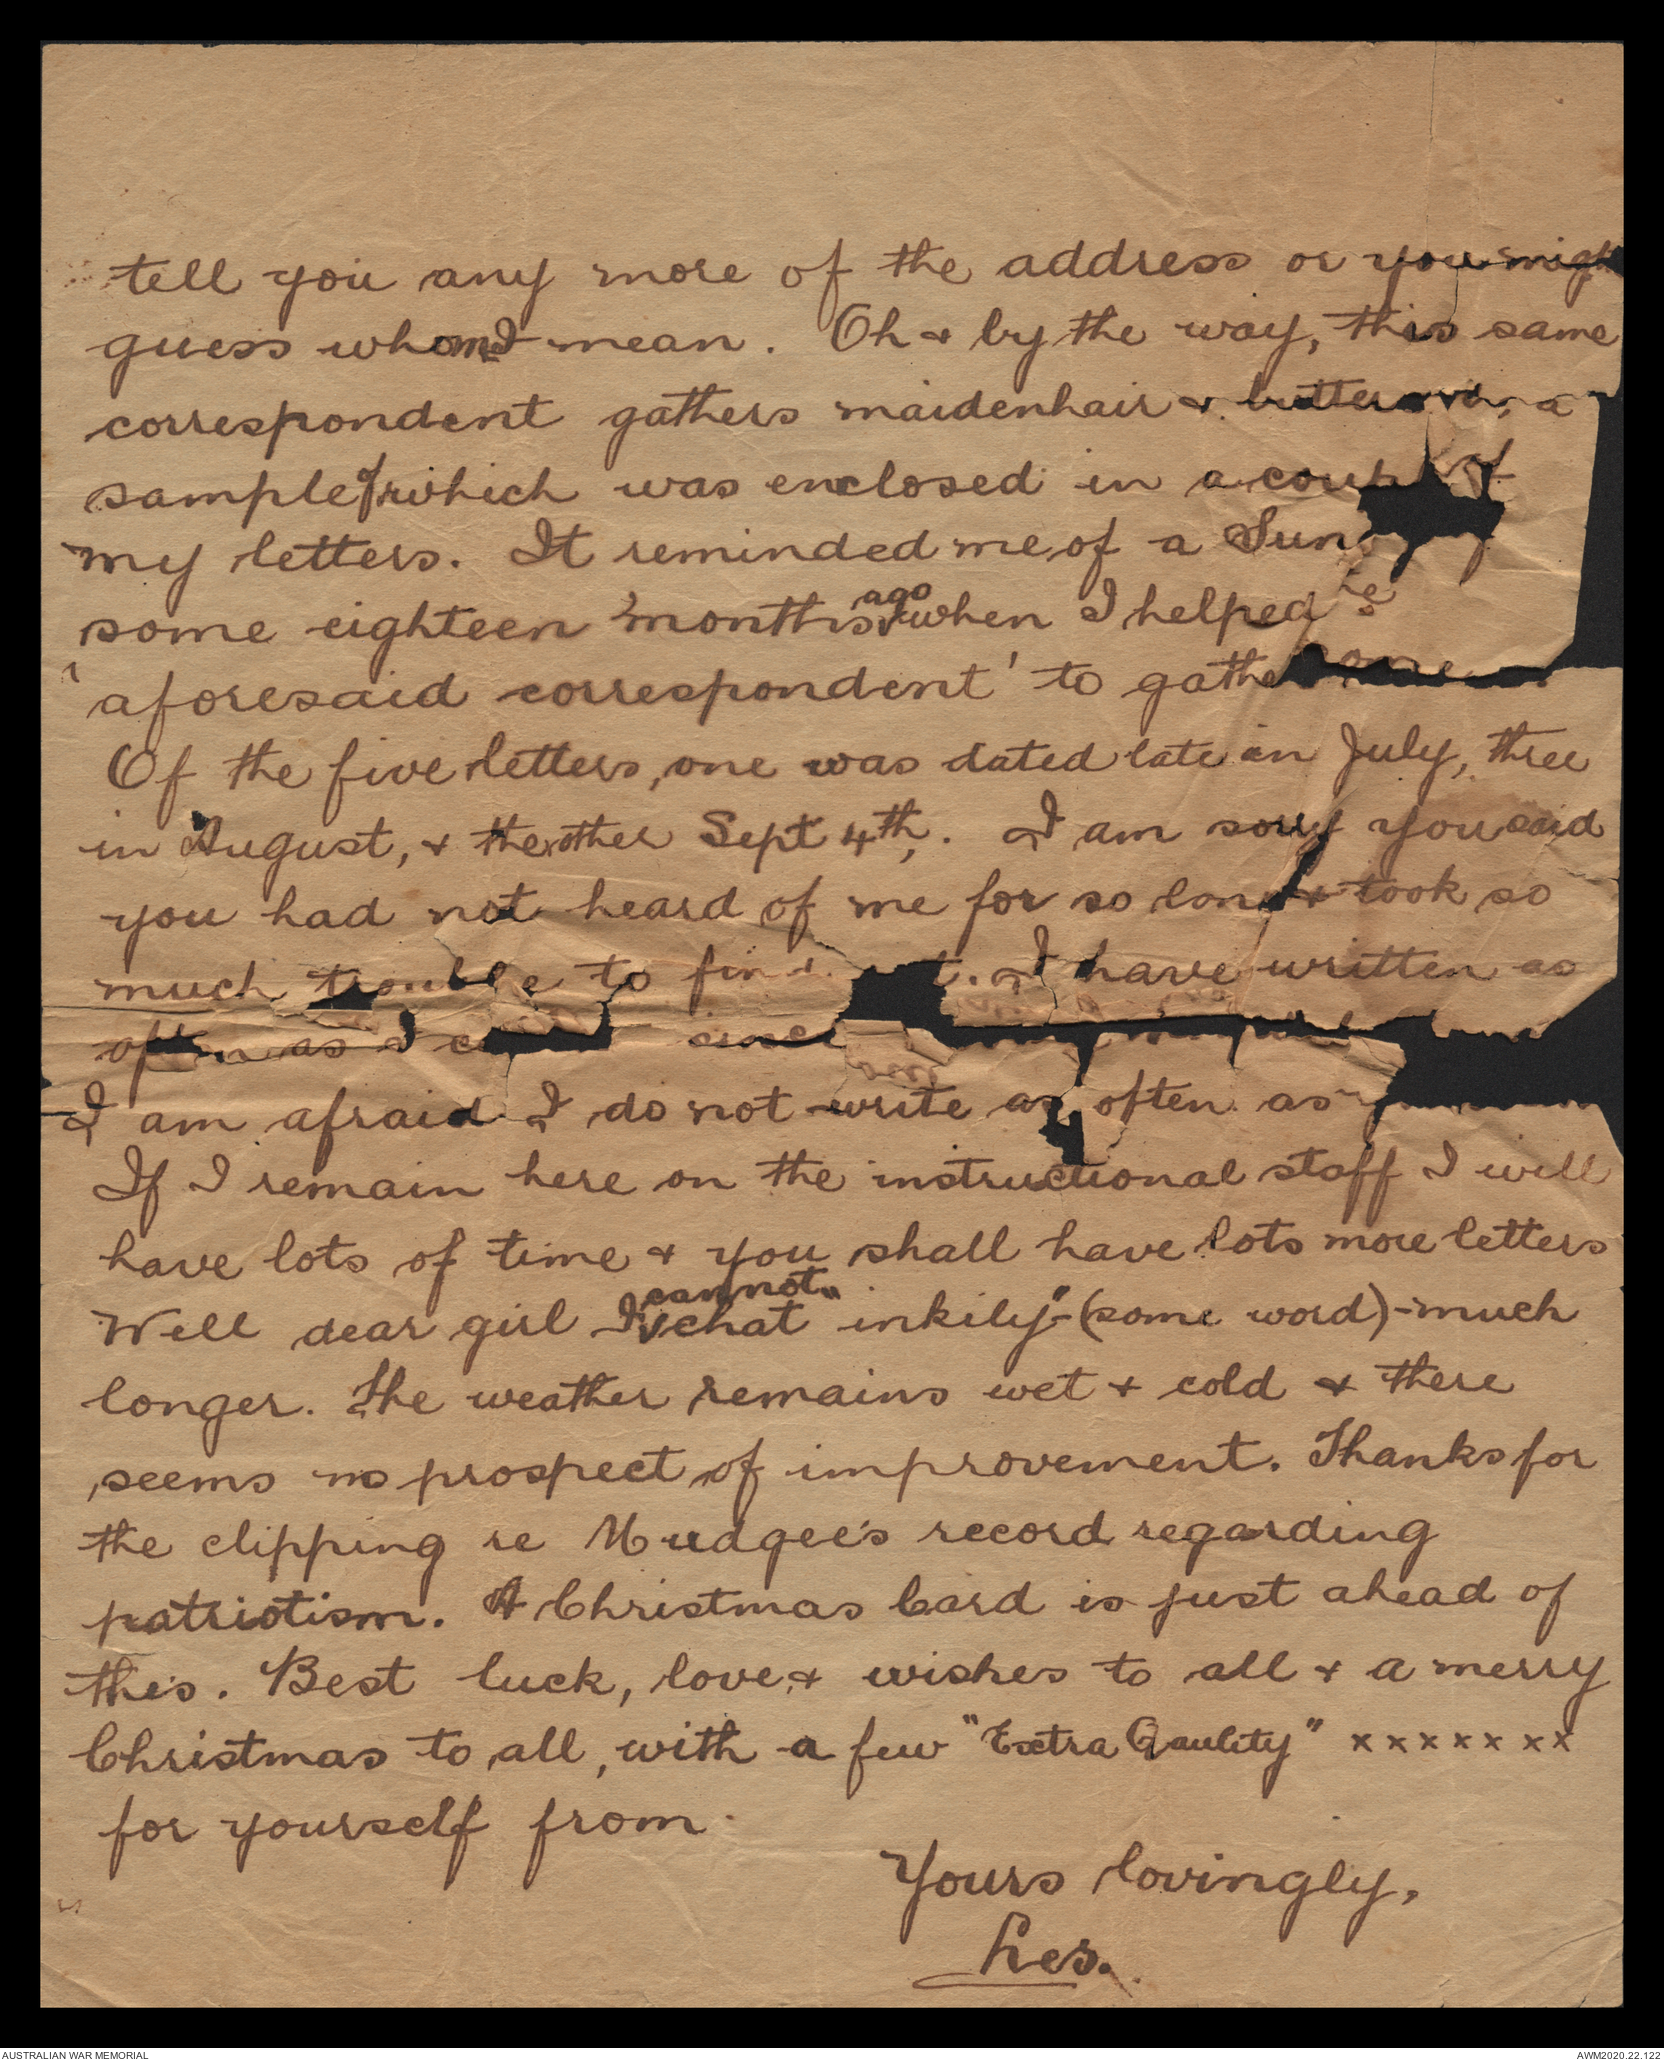 tell you any more of the address or you migh
guess whom I mean. Oh & by the way, this same
correspondent gathers maidenhair & a
sample of which was enclosed in a coup of
my letters. It reminded me of a Sun
some eighteen months ago when I helped
'aforesaid correspondent' to gather some
Of the five letters, one was dated late in July, three
in August, & the other Sept 4th,. I am sorry you said
you had not heard of me for so long & took so
much trouble to find . I have written as
often as I since
I am afraid I do not write as often as
If I remain here on the instructional staff I will
have lots of time & you shall have lots more letters
Well dear girl I cannot "chat inkily" - (some word) - much
longer. The weather remains wet & cold & there
seems no prospect of improvement. Thanks for
the clipping re Mudgee's record regarding
patriotism. A Christmas Card is just ahead of
this. Best luck, love & wishes to all & a merry
Christmas to all, with a few "Extra Qaulity" x x x x x x x
for yourself from
Yours lovingly,
Les.
AUSTRALIAN WAR MEMORIAL
AWM2020.22.122